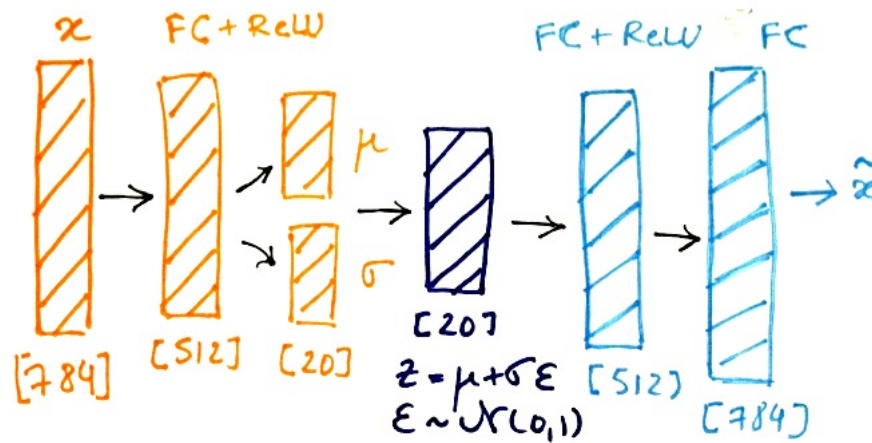 x
FC + ReLU
FC + ReLU
FC
μ
σ
x̃
[784]
[512]
[20]
[20]
z = μ + σ ε
ε ~ N(0,1)
[512]
[784]